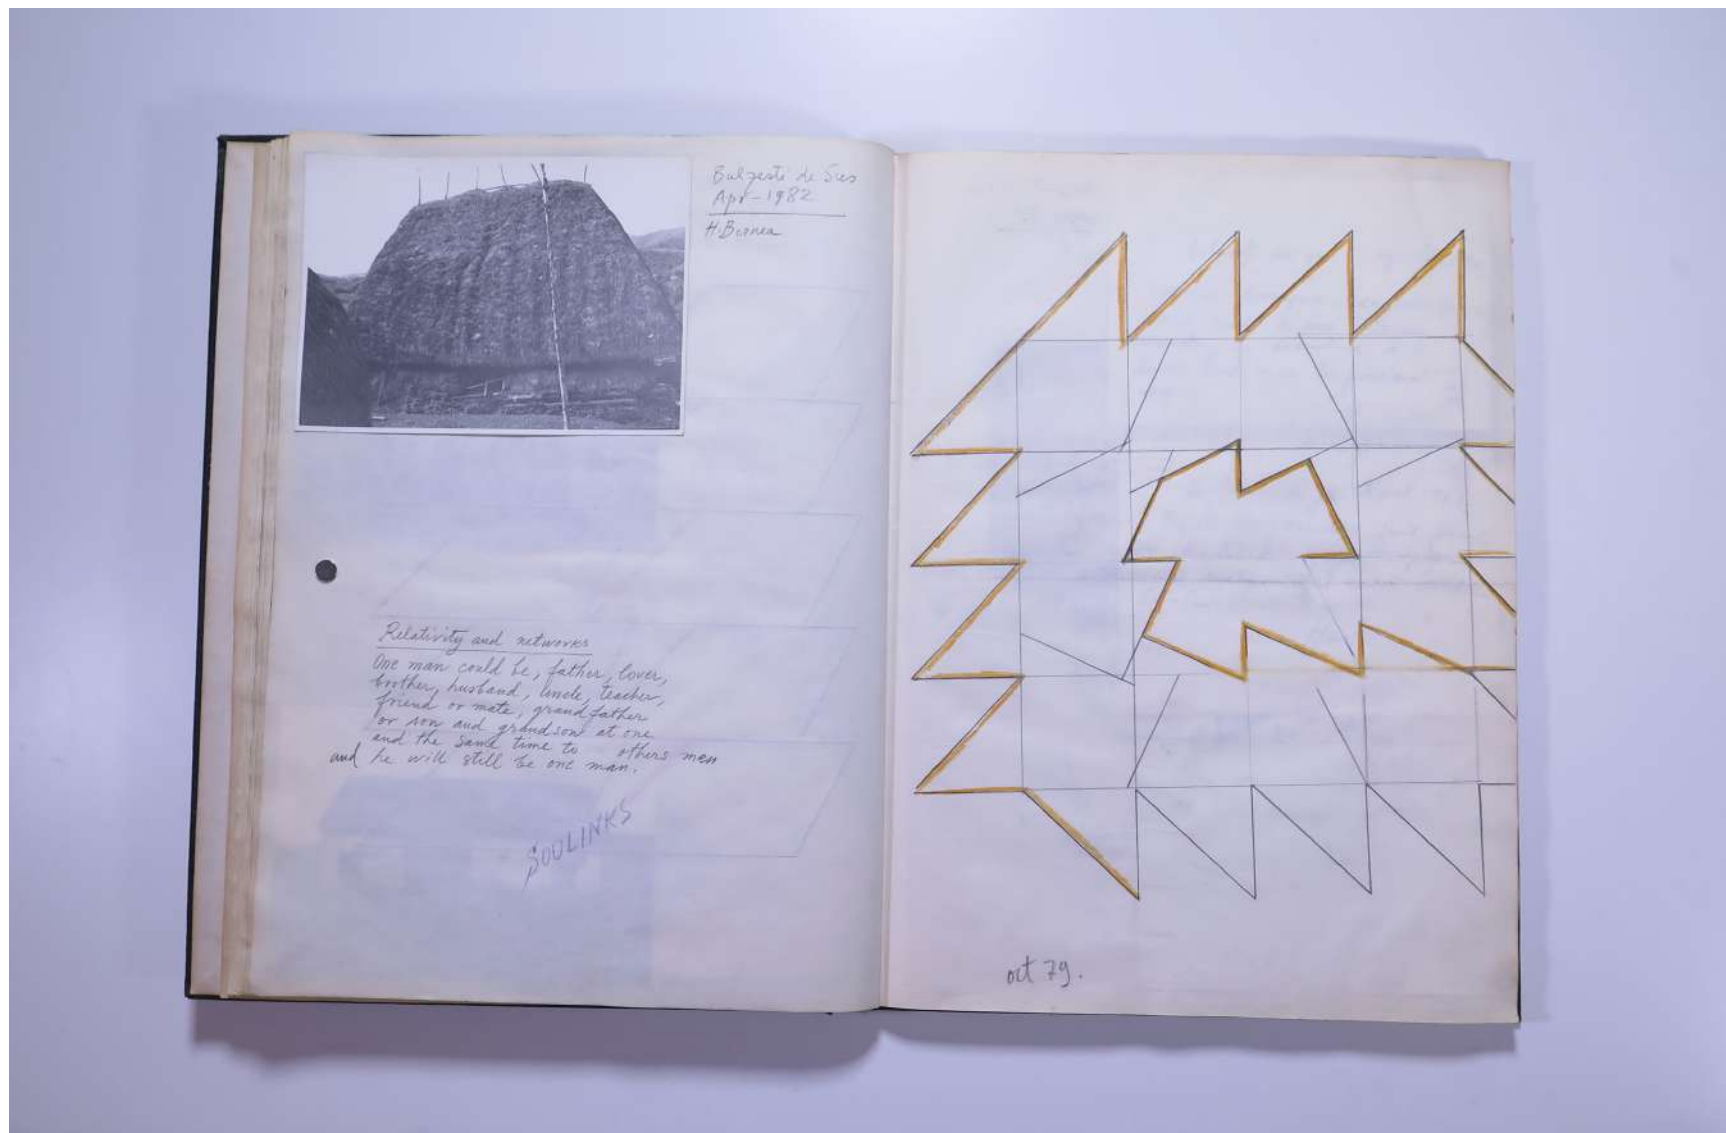 Bulzesti de Sus
Apr - 1982
H. Bernea
Relativity and networks
One man could be, father, lover,
brother, husband, uncle, teacher,
friend or mate, grand father
or son and grandson at one
and the same time to others men
and he will still be one man.
SOULINKS
oct 79.